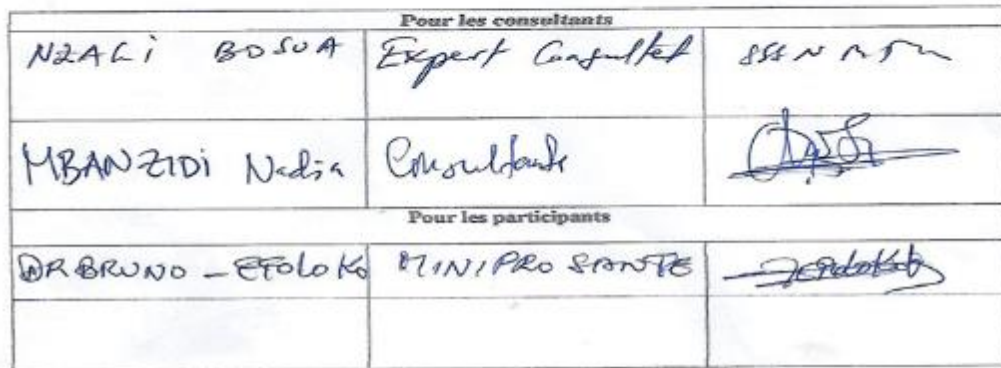 Pour les consultants
NZALI BOSUA Expert Consultet
MBANZIDI Nadia Consultante
Pour les participants
DR BRUNO - ETOLOKO MINIPRO SANTE